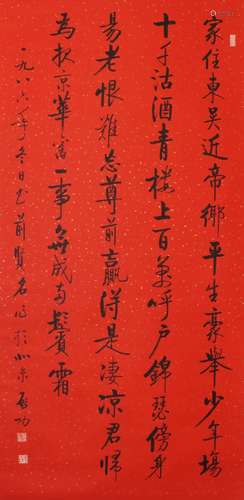 家住東吳近帝鄉平生豪舉少年場
十千沽酒青樓上百萬呼盧錦瑟傍身
易老恨難忘尊前贏得是凄涼君歸
為報京華舊一事無成兩鬢霜
一九八六年冬日書前賢名作於北京啟功